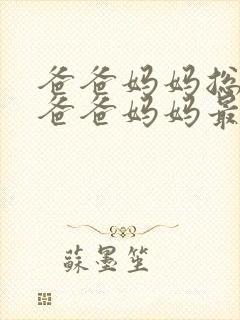 爸爸妈妈总
爸爸妈妈最
蘇墨笙